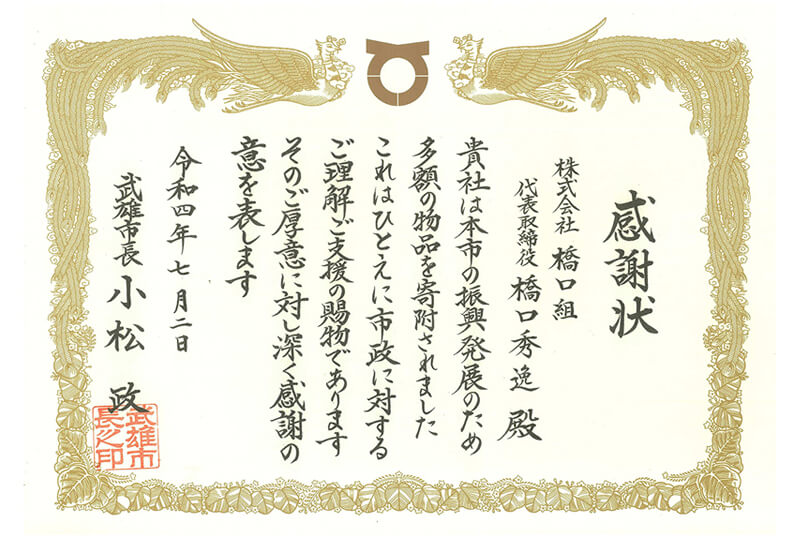 感謝状
株式会社 橋口組
代表取締役 橋口秀逸 殿
貴社は本市の振興発展のため
多額の物品を寄附されました
これはひとえに市政に対する
ご理解ご支援の賜物であります
そのご厚意に対し深く感謝の
意を表します
令和四年七月二日
武雄市長 小松 政
武雄市
長之印